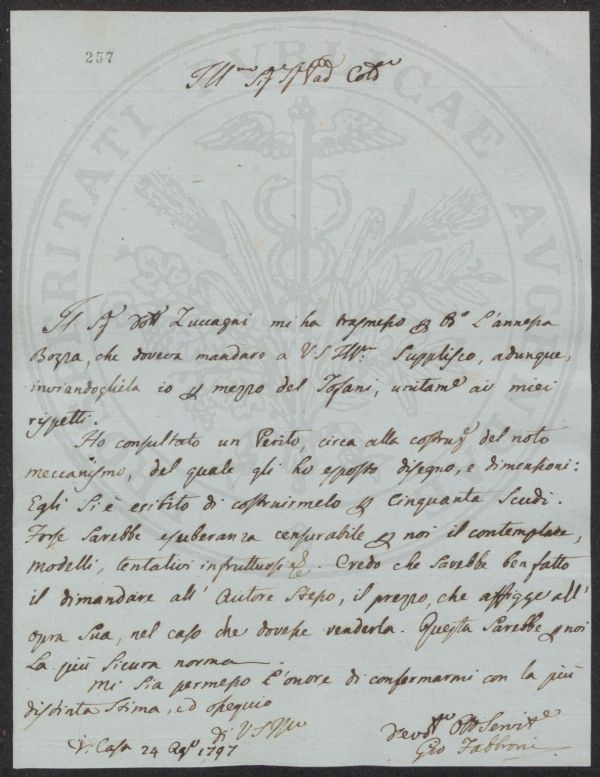 257
Ill.mo Sig.r Sig.r P.ad Col.mo
Il Sig.r Dott.r Zuccagni mi ha trasmesso l'annessa
Bozza, che doveva mandare a V.S. Ill.ma Supplisco, adunque,
inviandogliela io p mezzo del Tofani, unitam.e ai miei
rispetti.
Ho consultato un Perito, circa alla costruz.e del noto
meccanismo, del quale gli ho esposto disegno, e dimensioni:
Egli si è esibito di costruirmelo p Cinquanta Scudi.
Forse sarebbe esuberanza censurabile p noi il contemplare,
modelli, tentativi infruttuosi &. Credo che sarebbe ben fatto
il dimandare all' Autore stesso, il prezzo, che affigge all'
opra sua, nel caso che dovesse venderla. Questa sarebbe p noi
la più sicura norma.
Mi sia permesso l'onore di confermarmi con la più
distinta stima, ed ossequio
Di V.S. Ill.ma
Di Casa 24 Ag.o 1797
Devot.mo Obb Servit.e
Gio Fabbroni